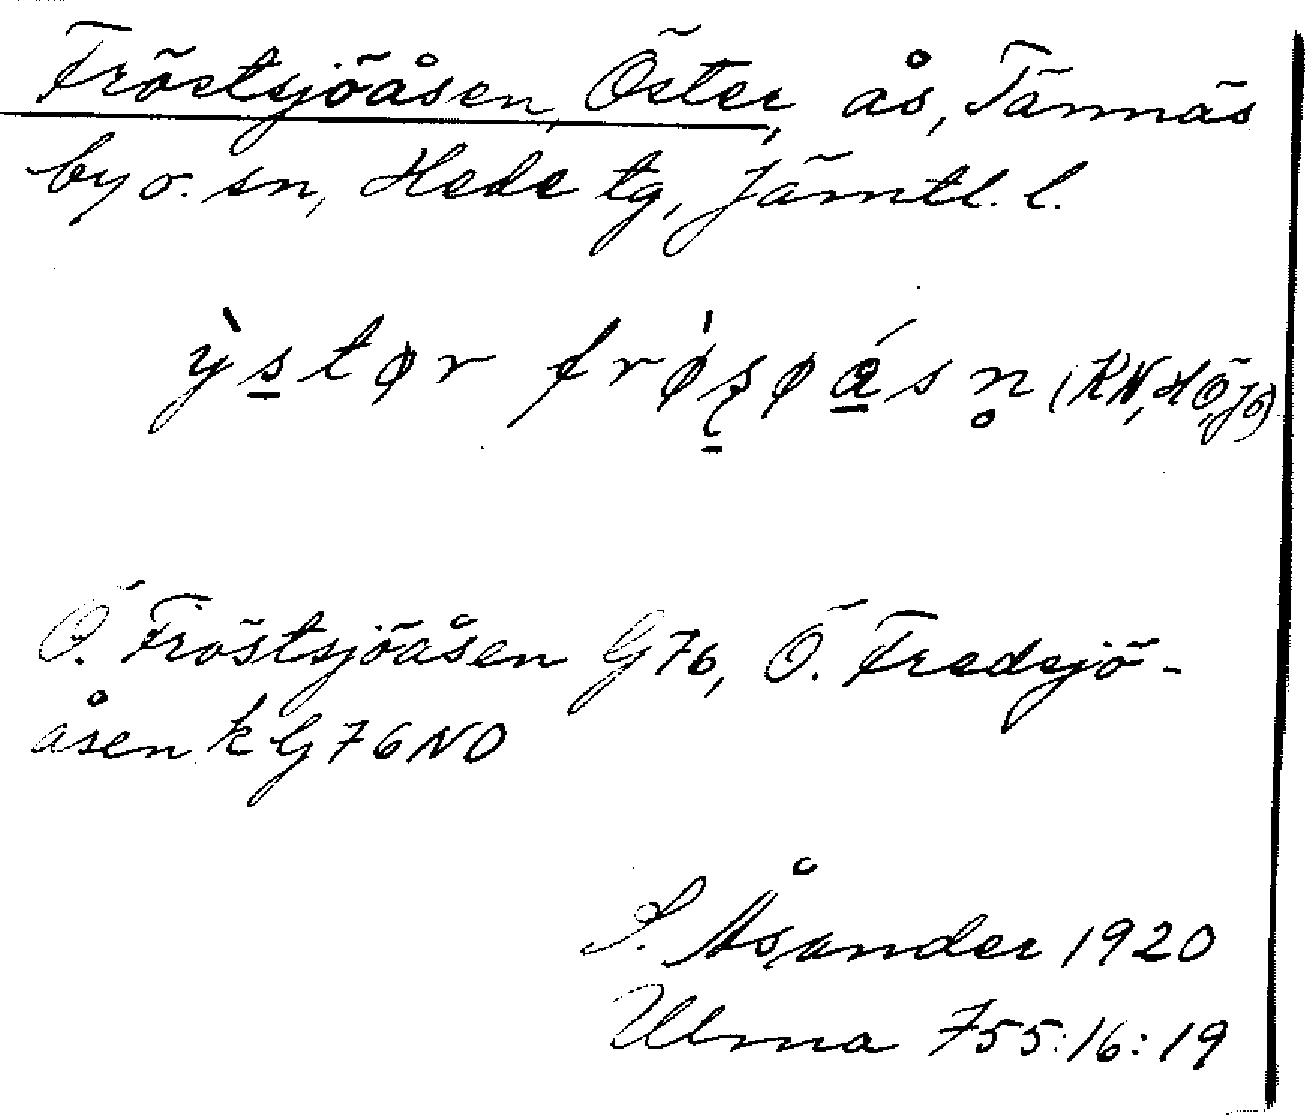 Fröstsjöåsen, Öster, ås, Tännäs
by o. sn, Hede tg, Jämtl. l.
(KN, HÖ, JÖ)
Ö. Fröstsjöåsen G76, Ö. Fredsjö-
åsen k G76NO
S. Åsander 1920
Ulma 755:16:19